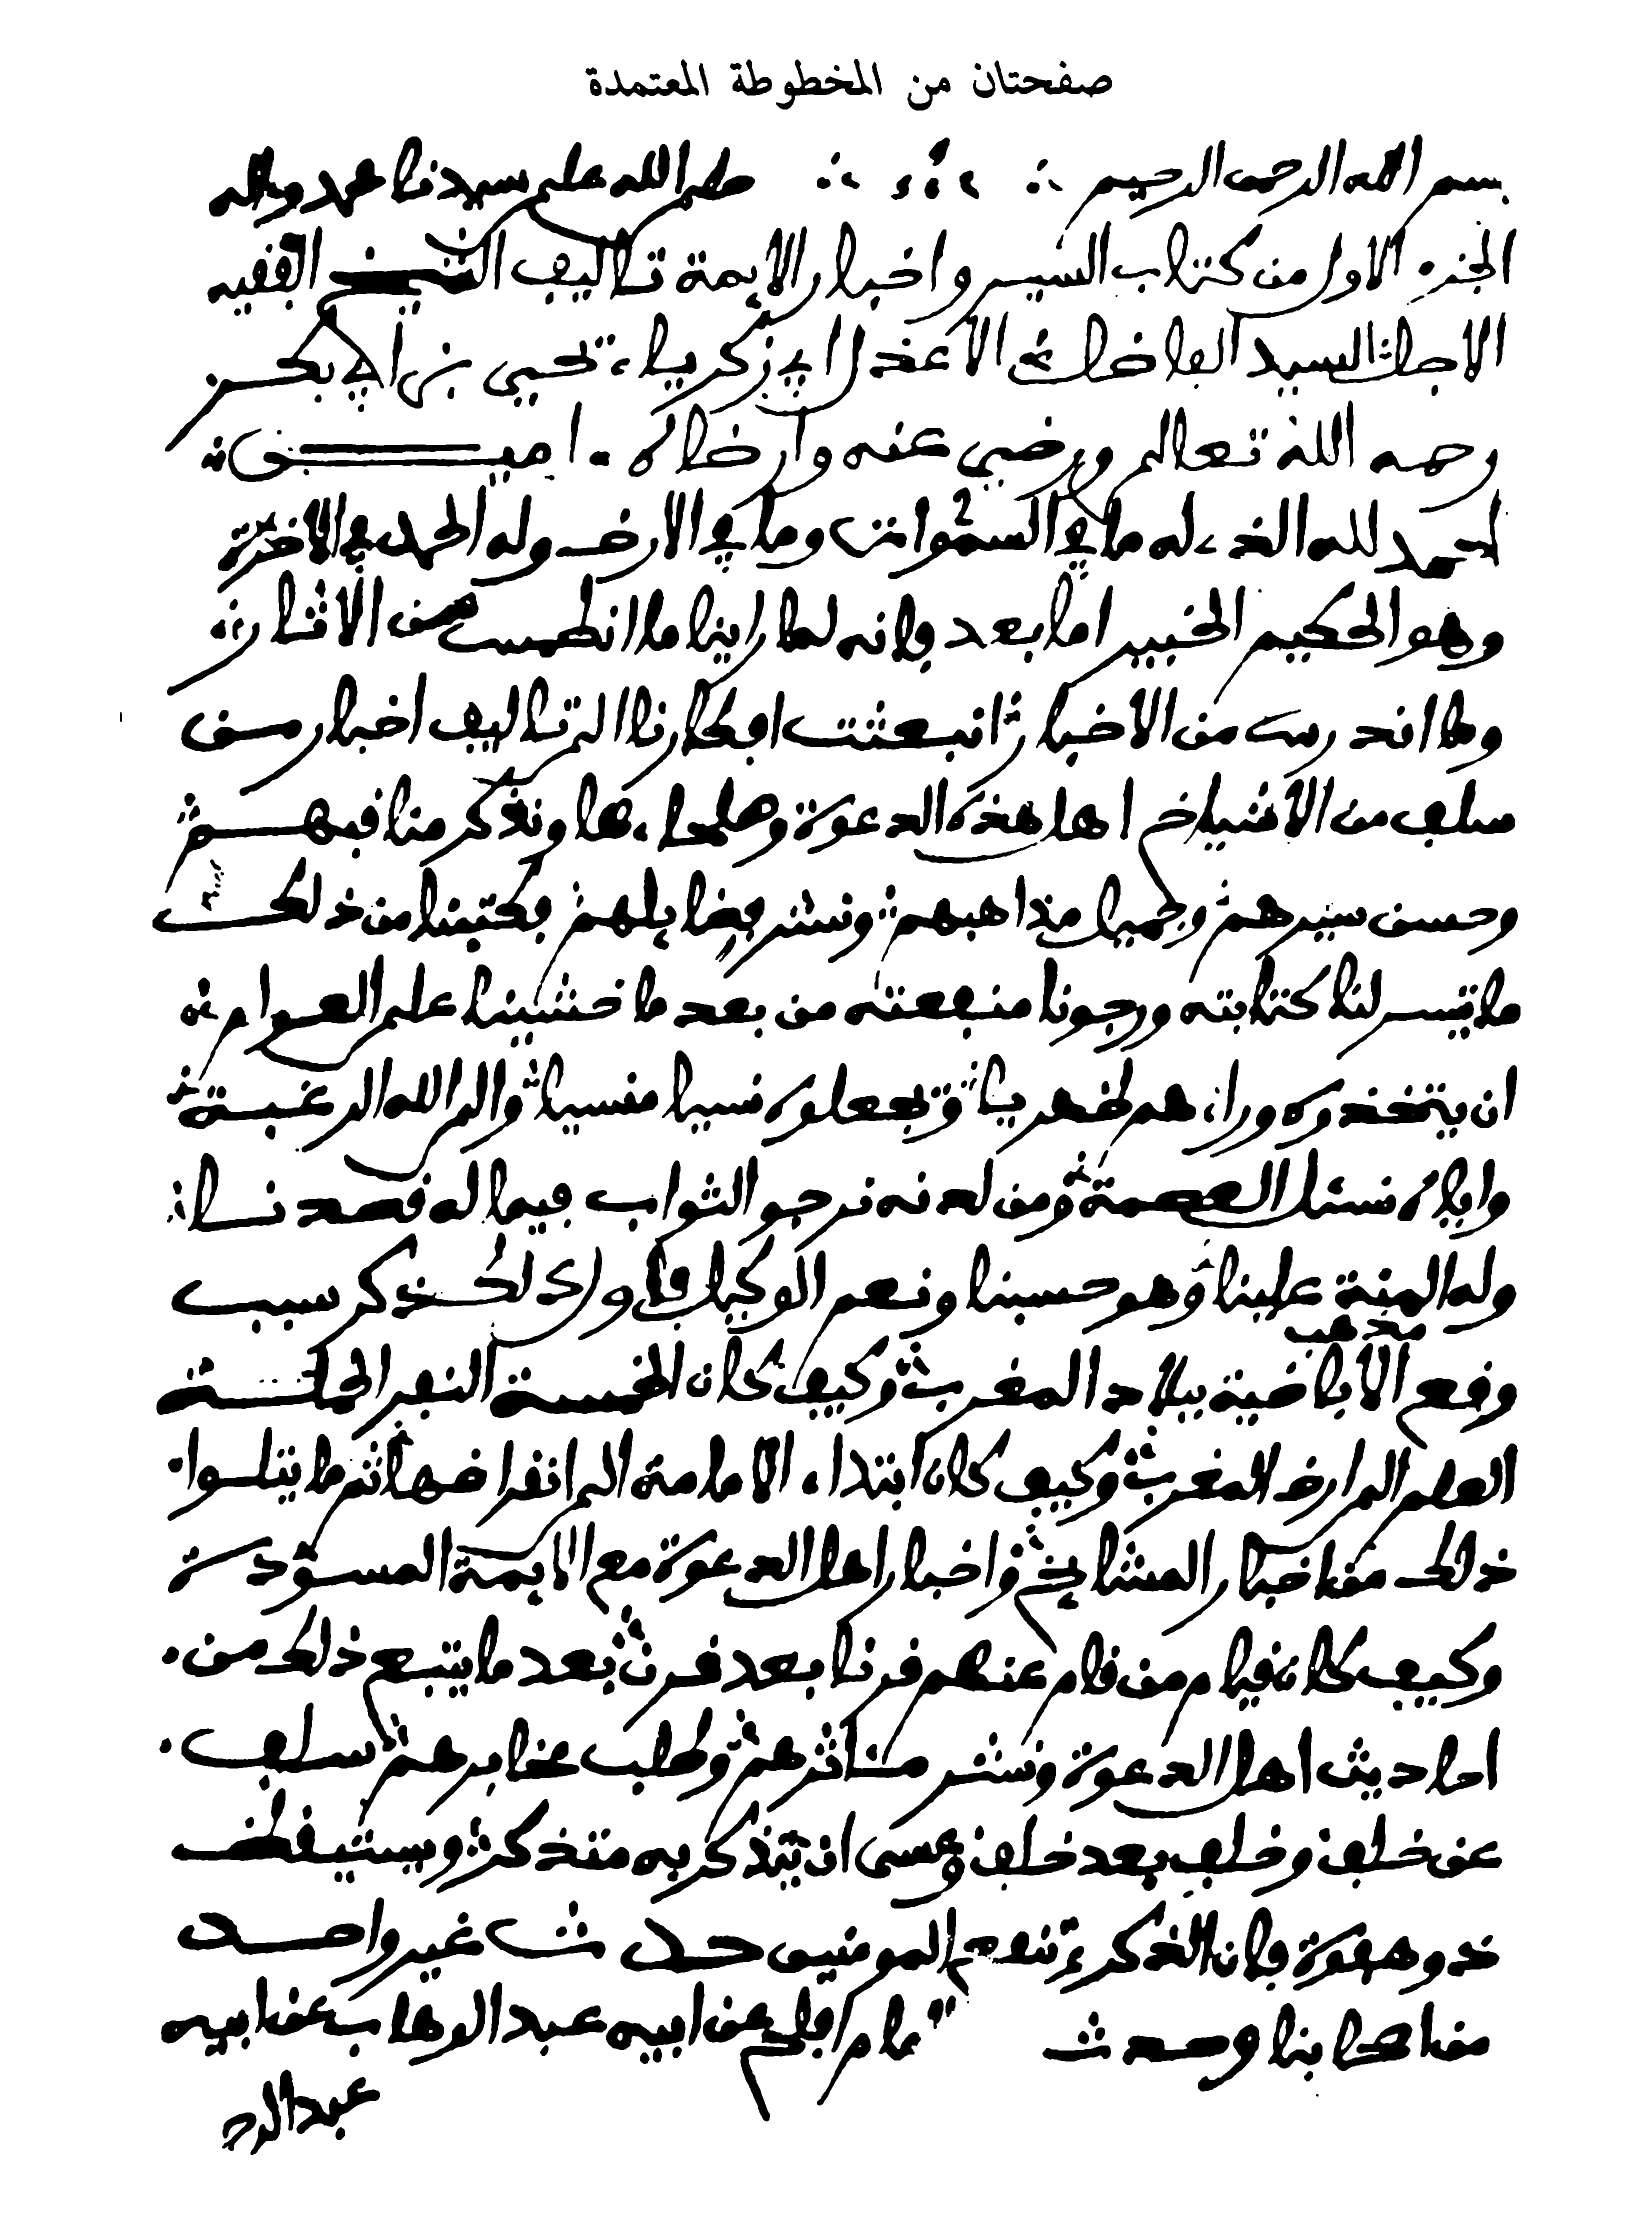 صفحتان من المخطوطة المعتمدة
بسم الله الرحمن الرحيم صلى الله على سيدنا محمد وءاله
الجزء الاول من كتاب السير واخبار الايمة تاليف الشيخ الفقيه
الاجل السيد الفاضل الاعدل ابي زكرياء يحيى بن ابي بكر
رحمه الله تعالى ورضي عنه وارضاه امين
الحمد لله الذي له ما في السموات وما في الارض وله الحمد في الاخرة
وهو الحكيم الخبير اما بعد فانه لما راينا ما انطمس من الاثار
وما اندرس من الاخبار انبعثت افكارنا الى تاليف اخبار من
سلف من الاشياخ اهل هذه الدعوة وصلحاءها ونذكر مناقبهم
وحسن سيرهم وجميل مذاهبهم ونشر فضايلهم فكتبنا من ذلك
ما تيسر لنا كتابته ورجونا منفعته من بعد ما خشينا على العوام
ان يتخذوه وراءهم ظهريا ويجعلوه نسيا منسيا والى الله الرغبة
واياه نسئل العصمة ومن لدنه نرجو الثواب فيما له قصدنا
وله المنة علينا وهو حسبنا ونعم الوكيل فاول ذلك ذكر سبب
مذهب
وقع الاباضية ببلاد المغرب وكيف كان الخمسة النفر الحملة
العلم الى ارض المغرب وكيف كان ابتداء الامامة الى انقراضها ثم ما يتلوا
ذلك من اخبار المشايخ واخبار اهل الدعوة مع الايمة المسودة
وكيف كان قيام من قام عنهم قرنا بعد قرن بعد ما يتبع ذلك من
احاديث اهل الدعوة ونشر مناثرهم وطلب عنابرهم سلف
عن خلف وخلف بعد خلف وعسى ان يتذكر به متذكر ويستيقظ
ذو هفوة فان الذكرى تنفع المومنين حدث غير واحد
من اصحابنا وحدث مام افلح عن ابيه عبد الوهاب عن ابيه
عبد الر